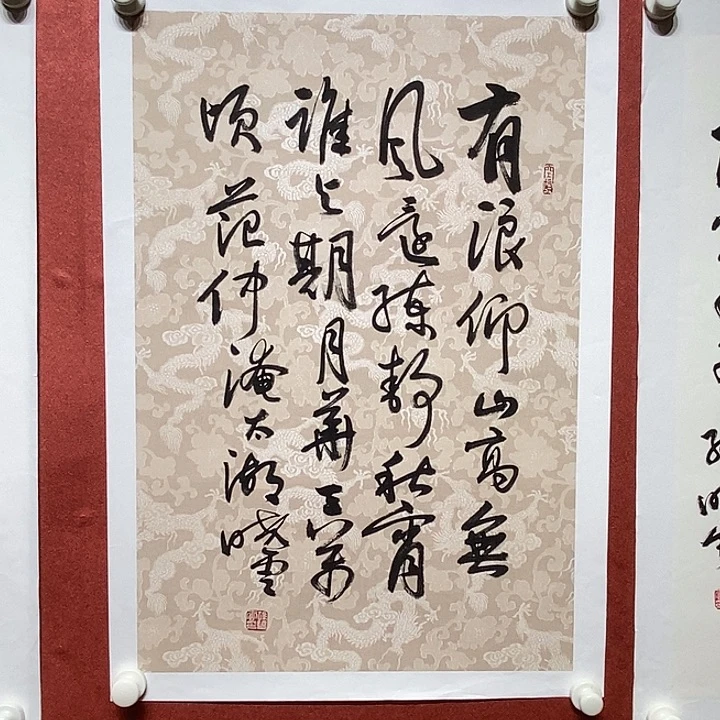 有浪仰山高無
風還練静秋宵
誰与期月華三萬
頃 范仲淹太湖 晓雲